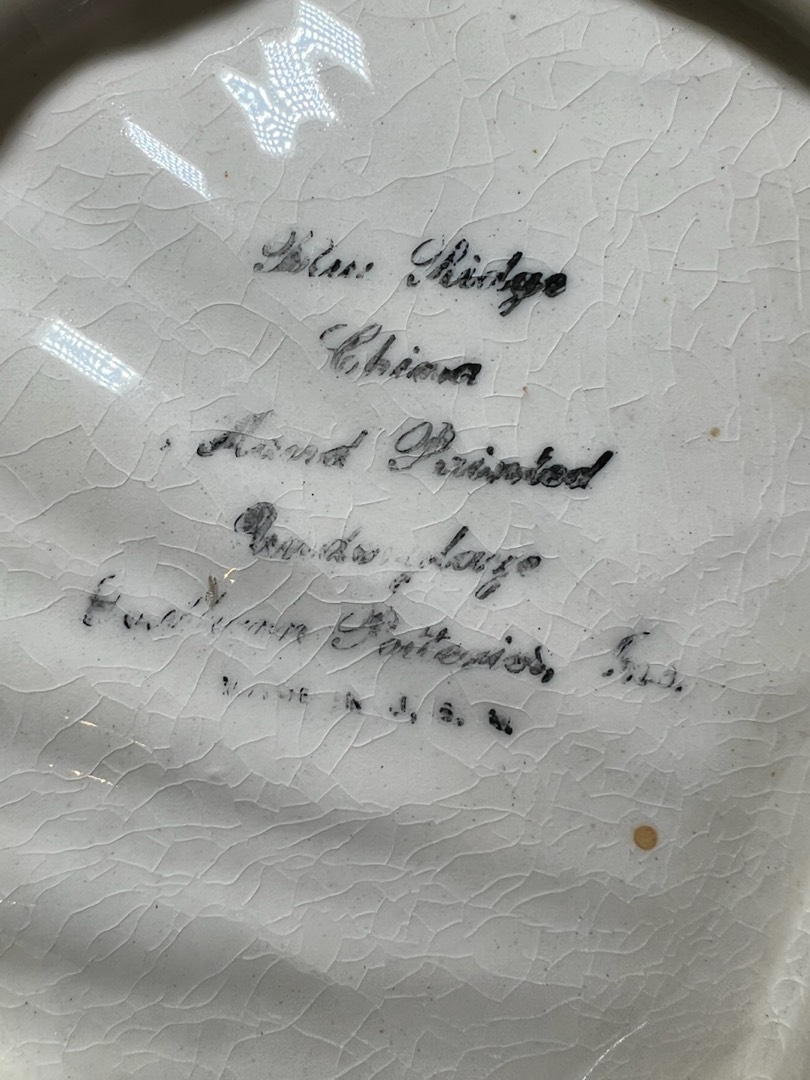 Blue Ridge
China
Hand Painted
Underglaze
Southern Potteries, Inc.
MADE IN U. S. A.